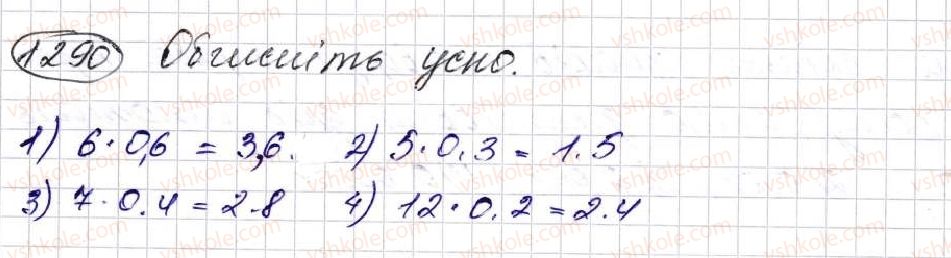 1290 Обчисліть усно.
1) 6·0,6 = 3,6. 2) 5·0.3 = 1.5
3) 7·0.4 = 2.8 4) 12·0.2 = 2.4